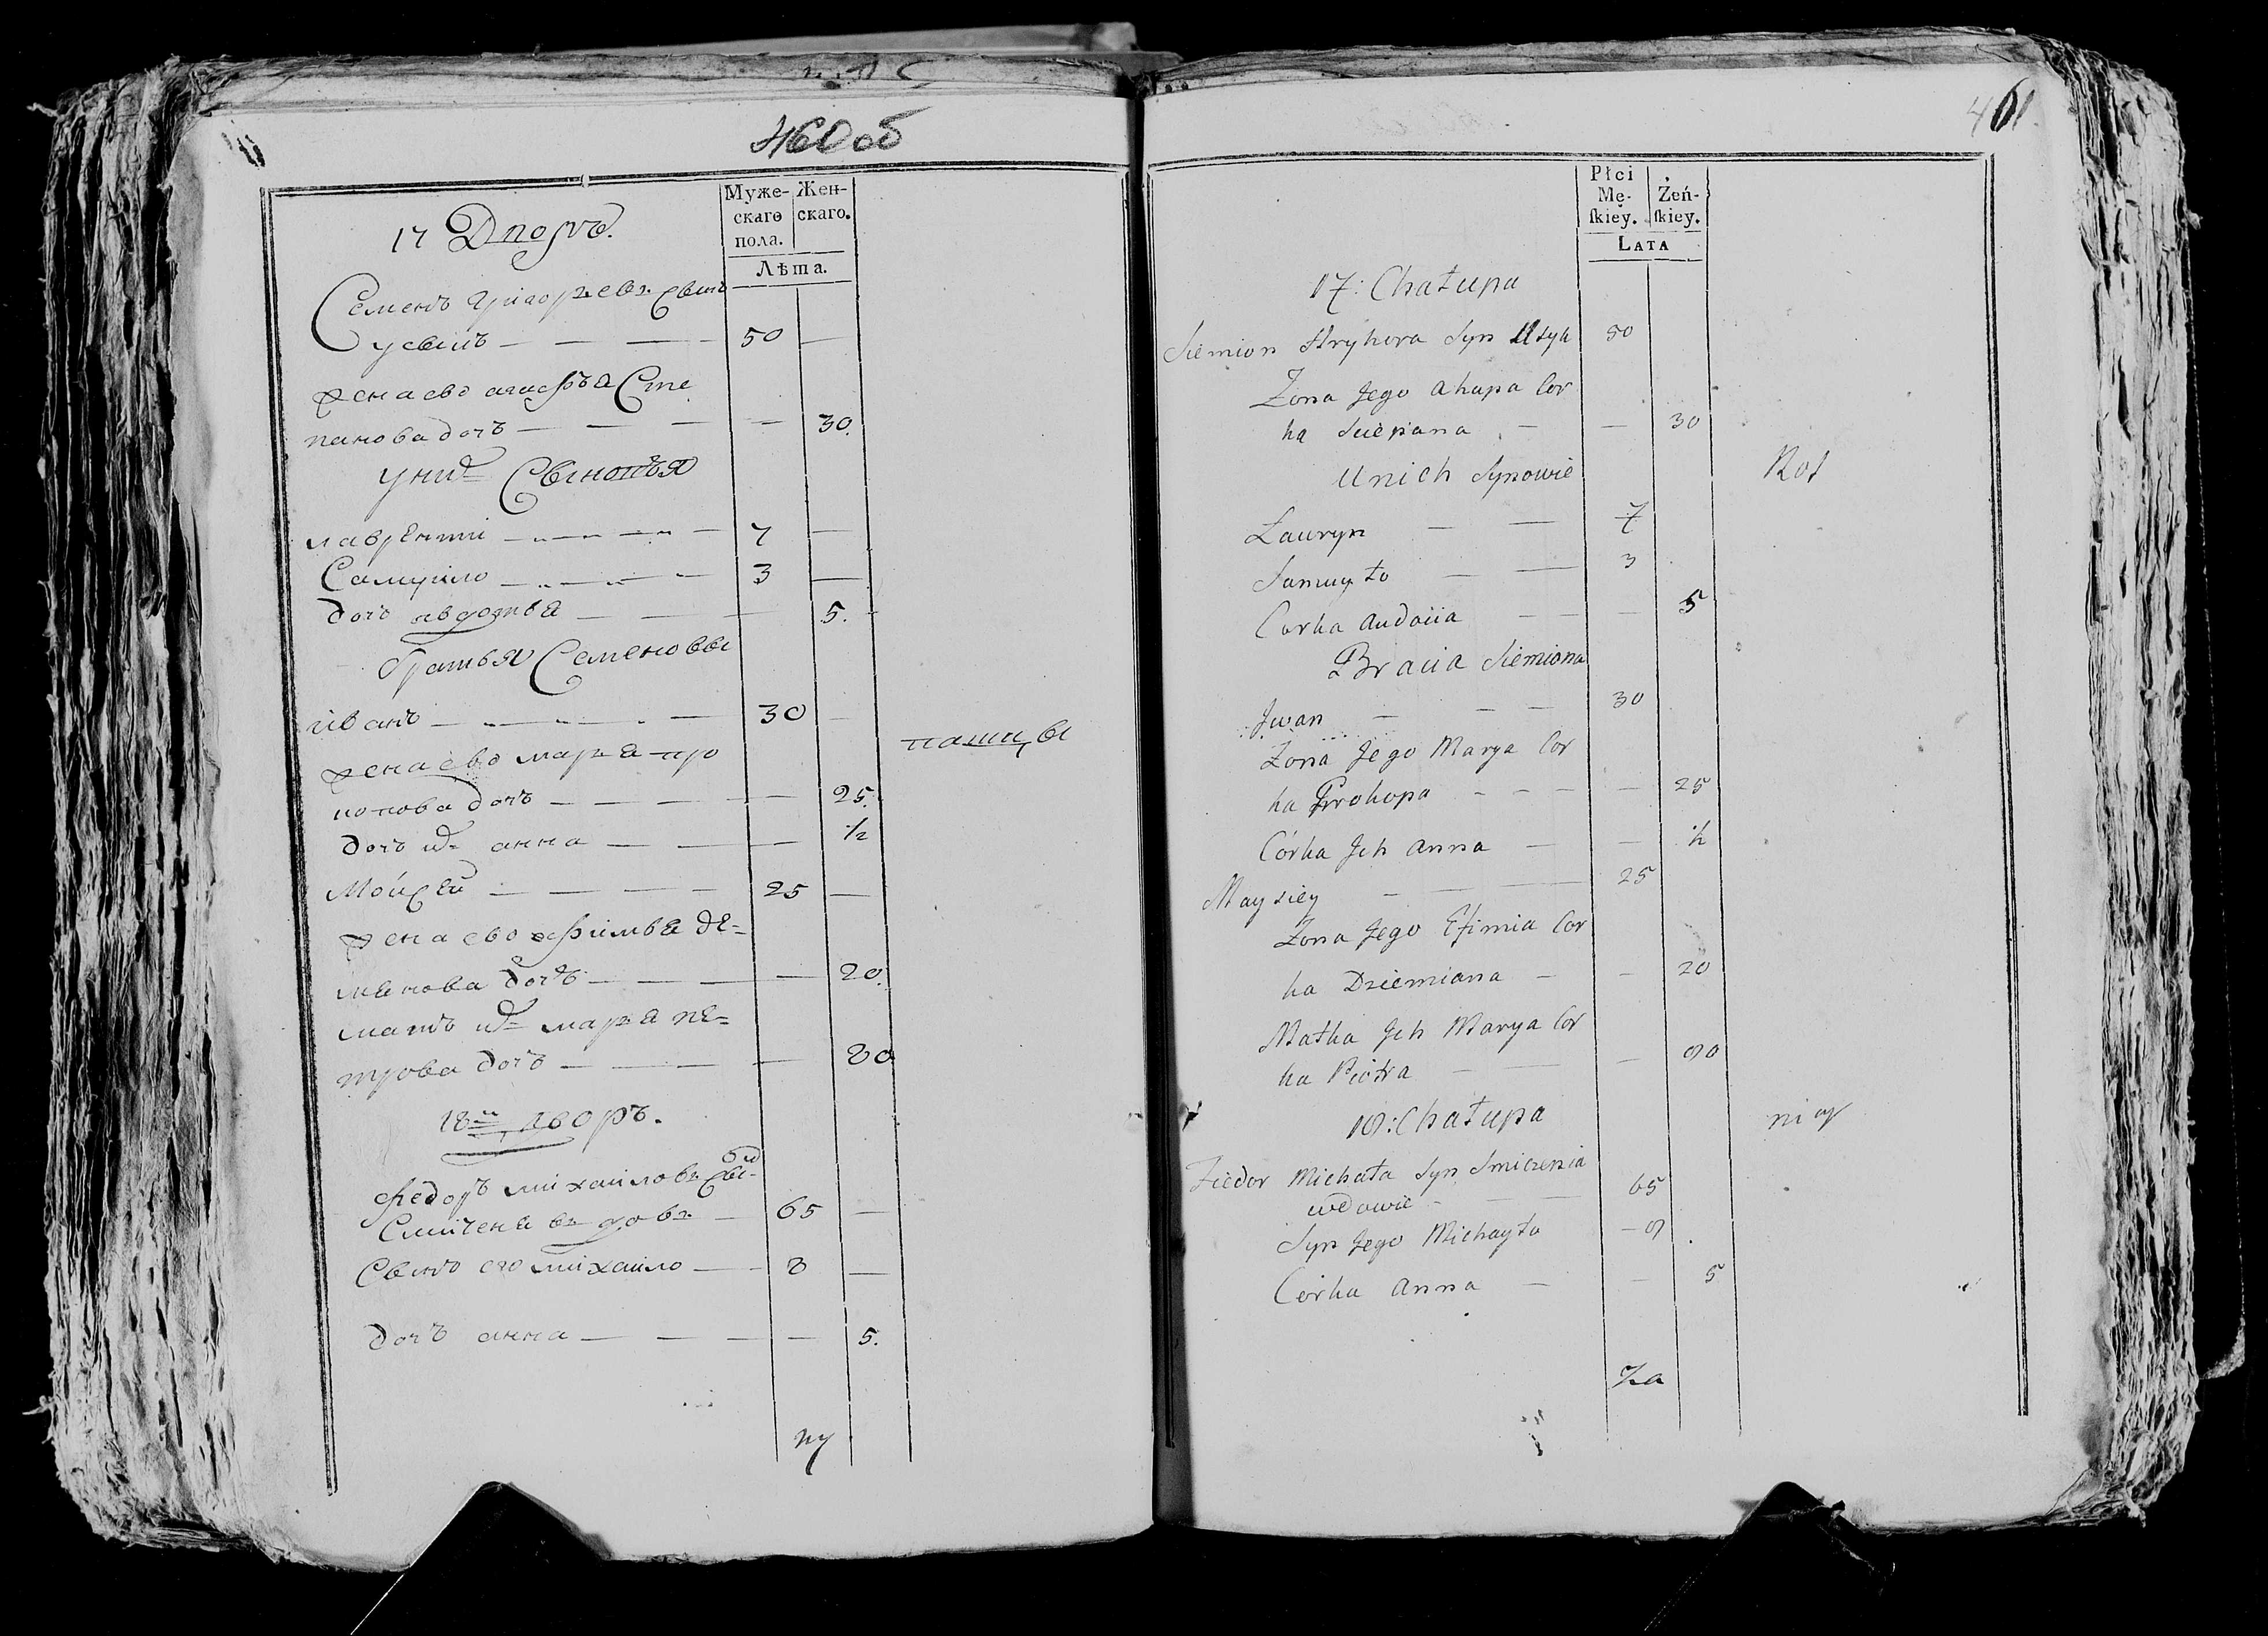 460 об
Муже-
скаго
пола.
Жен-
скаго.
Лѣта.
17 Дворъ.
Семенъ григорьевъ сынъ
усвилъ — — — 50 —
жена ево агафья Сте
панова дочь — — — — 30.
у них Сыновья
лаврентий — — — 7 —
Самуило — — — 3 —
дочь авдотья — — — 5.
братья Семеновы
иванъ — — — 30 —
жена ево марья про
копова дочь — — — — 25.
пашцы
дочь их анна — — — ½
Мойсей — — — 25 —
жена ево афимья де-
мянова дочь — — — — 20.
мать их марья пе-
трова дочь — — — — 80
18й дворъ.
федоръ михаиловъ сы-
Смичена вдовъ — 65 —
Сынъ его михаило — 8 —
дочь анна — — — — 5.
461.
Płci
Mę-
ſkiey.
Żeń-
ſkiey.
LATA
17: Chałupa
Siemion Hryhora Syn Usyk 50
Zona Jego Ahapa Cor
ka Sciepana — — 30
U nich Synowie
Rol
Lauryn — — 7
Samuyło — — 3
Corka Audocia — — — 5
Bracia Siemiona
Jwan — — — 30
Zona Jego Marya Cor
ka Prokopa — — — — 25
Córka Jch Anna — — ½
Maysiey — — 25
Zona Jego Efimia Cor
ka Dziemiana — — 20
Matka Jch Marya Cor
ka Piotra — — — 80
18: Chałupa
Fiedor Michała Syn Smiczenia
wdowiec — — — 65
Syn Jego Michayło — 8
Córka Anna — — 5